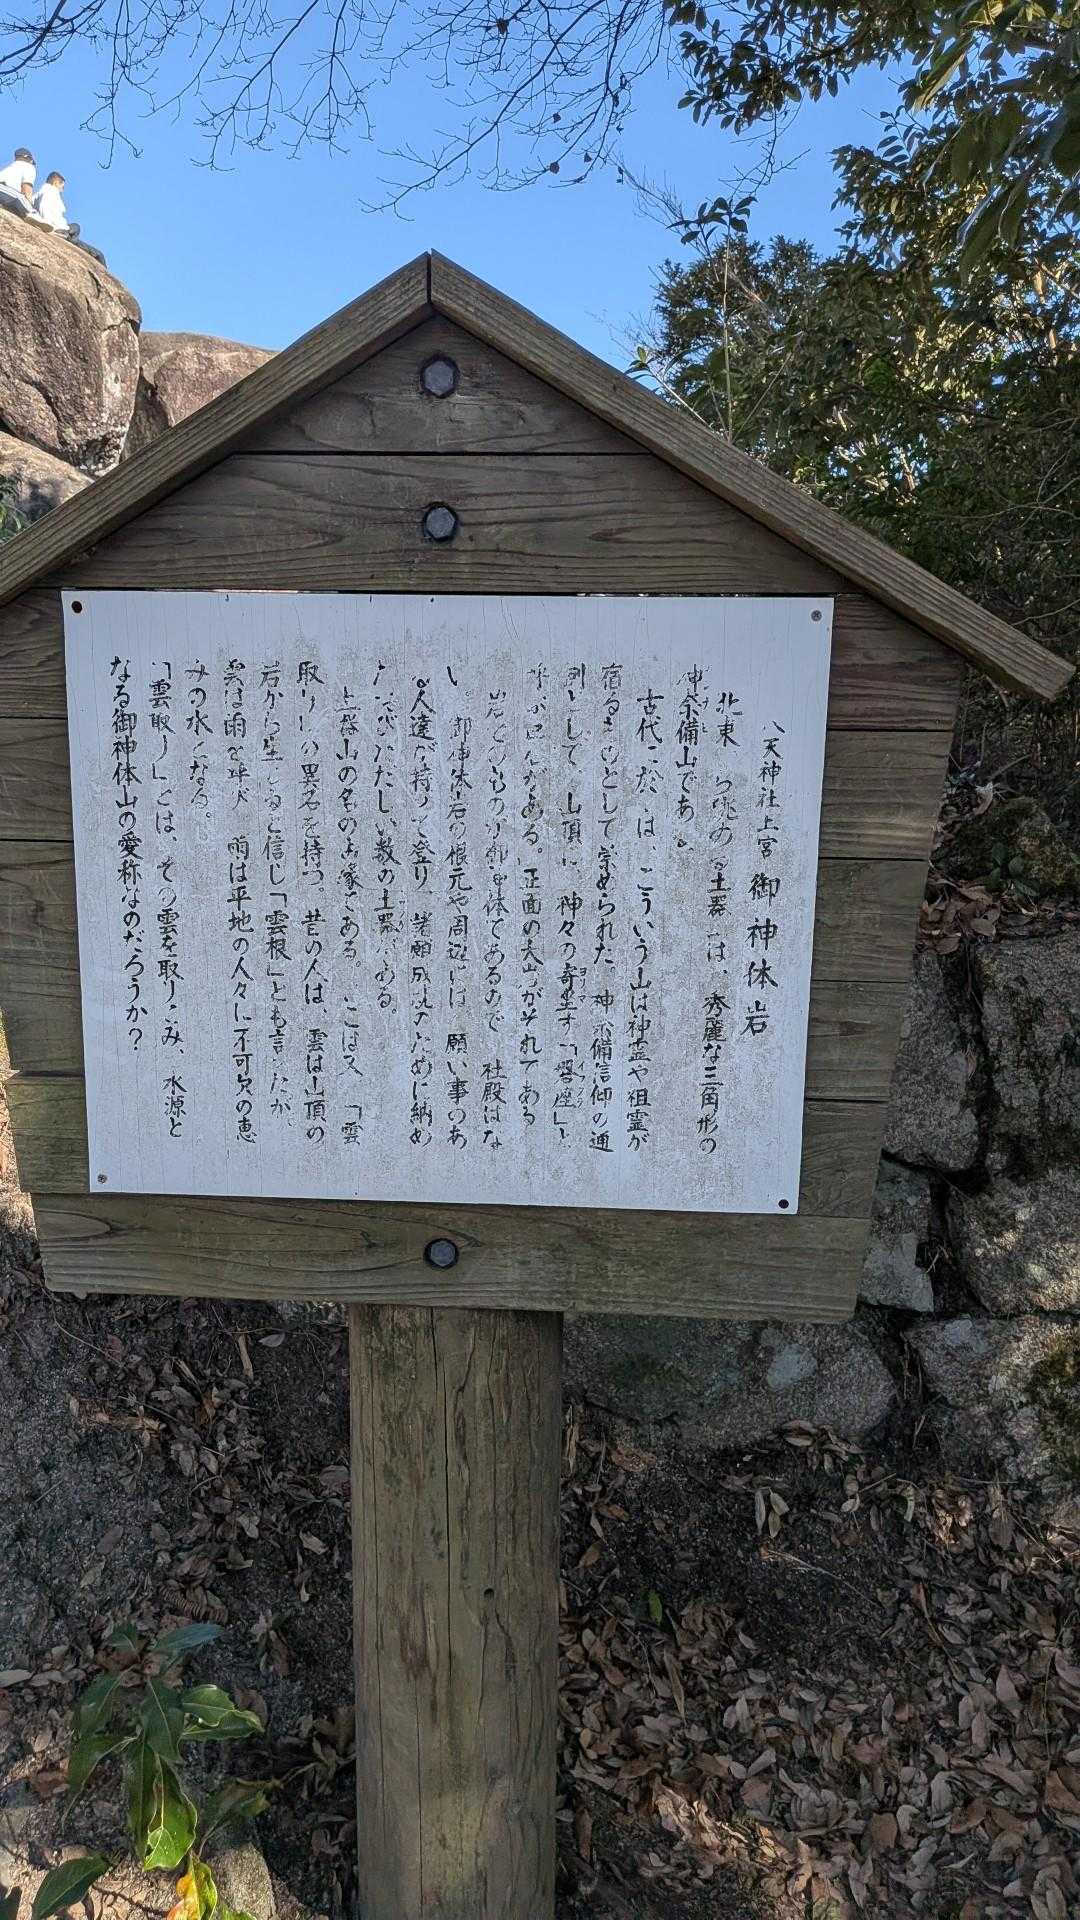 八天神社上宮 御神体岩
北東 ら眺める土器 は、秀麗な三角形の
神奈備山であ
古代に於 は、こういう山は神霊や祖霊が
宿るものとして崇められた。神奈備信仰の通
例として、山頂に、神々の寄坐す「磐座」と
ヨリマ イワクラ
呼ぶ巨 がある。正面の大 がそれである
岩そのものが御神体であるので 社殿はな
い。御神体岩の根元や周辺には 願い事のあ
る人達が持って登り、諸願成就のために納め
たおびただしい数の土器がある。
土器山の名の由縁である。 こは又、「雲
取り の異名を持つ。昔の人は、雲は山頂の
岩から生じると信じ「雲根」とも言ったが
雲は雨を呼び 雨は平地の人々に不可欠の恵
みの水となる。
「雲取り」とは、その雲を取りこみ、水源と
なる御神体山の愛称なのだろうか?